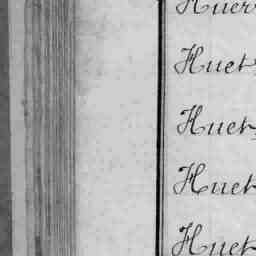 Huer
Huet
Huet
Huet
Huet